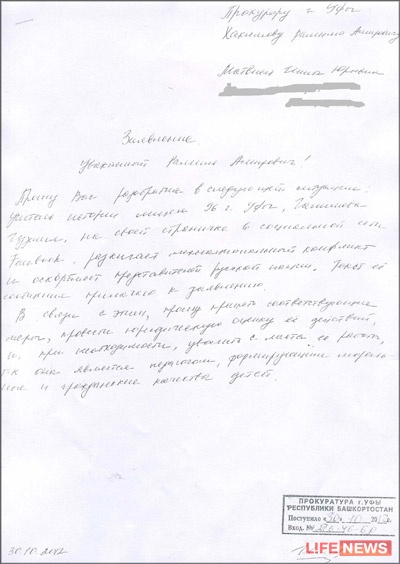 Прокурору г. Уфы
Хакимову Рамилю Амировичу
Матвиец
Заявление.
Уважаемый Рамиль Амирович!
Прошу Вас разобраться в следующей ситуации:
учитель истории лицея 96 г. Уфы,
на своей страничке в социальной сети
Facebook разжигает межнациональный конфликт
и оскорбляет представителей русской нации. Текст её
сообщения прилагаю к заявлению.
В связи с этим, прошу принять соответствующие
меры, провести юридическую оценку её действий,
и, при необходимости, уволить с места её работы,
т.к. она является педагогом, формирующим мораль-
ные и гражданские качества детей.
ПРОКУРАТУРА г. УФЫ
РЕСПУБЛИКИ БАШКОРТОСТАН
Поступило «30» 10 2012г.
Вход. №
30.10.2012
LIFE NEWS